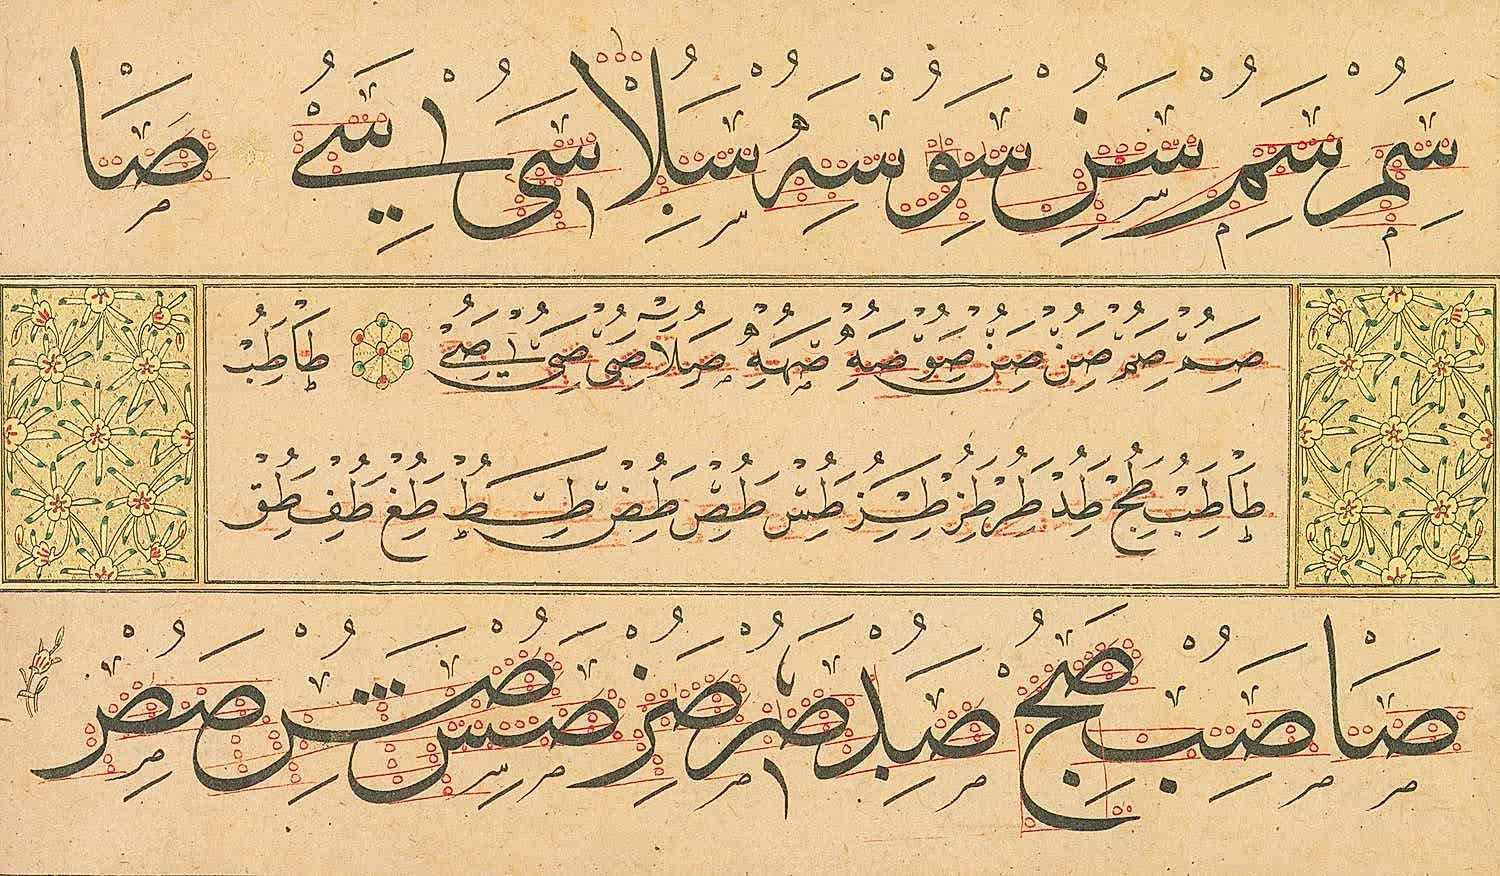 سم سم سن سو سه سلا سى سے صا
صم صم صن صن صو صه صهه صلا صى صى صے طا طب
طا طب طج طد طر طز طس طص طط طع طف طق
صا صب صج صد صر صر صس صص